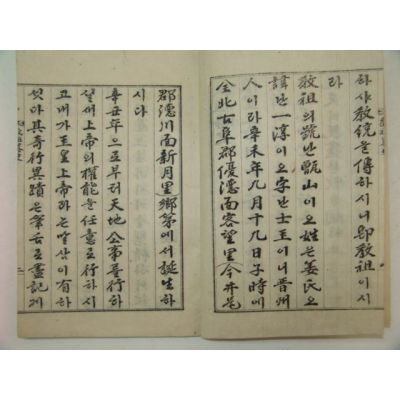 하사敎統을傳하시니卽敎祖이시
라
敎祖의號난甑山이오姓은姜氏오
諱난一淳이오字난士玉이니晋州
人이라辛未年九月十九日子時에
全北古阜郡優德面客望里今井邑
郡德川面新月里鄕第에서誕生하
시다
辛丑年으로부터天地公事를行하
실새上帝의權能을任意로行하시
고내가玉皇上帝라는말삼이有하
其奇行異蹟은筆舌로盡記케